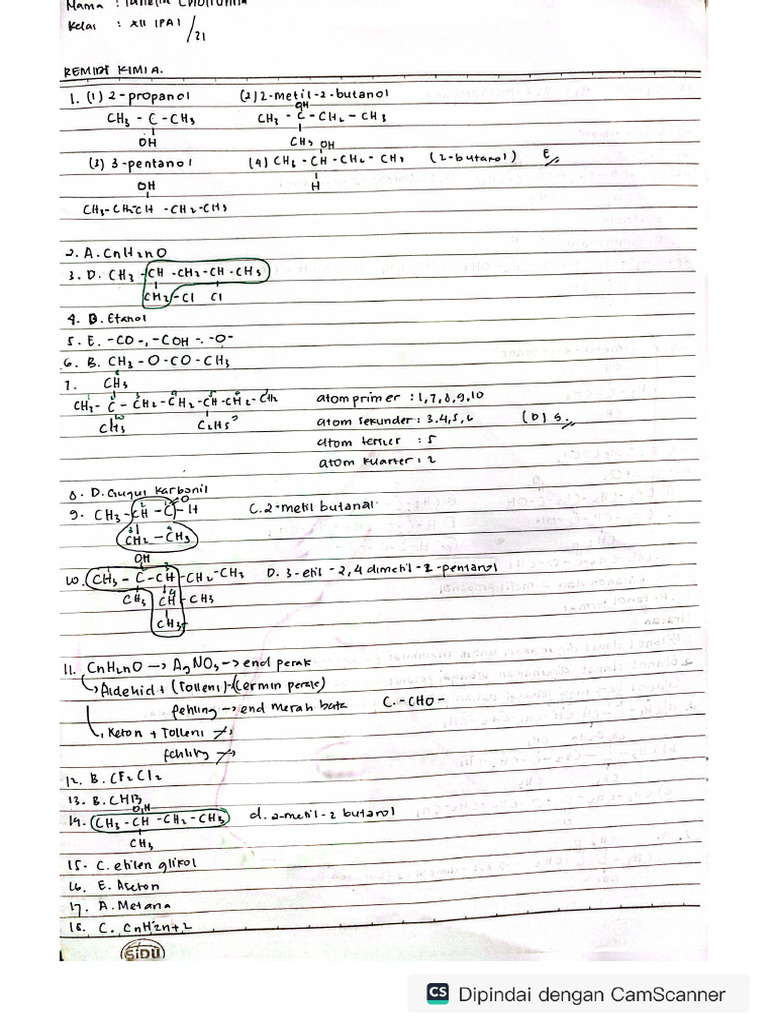 Nama :
Kelas : XII IPA1 /21
REMIDI KIMIA.
1. (1) 2-propanol (2) 2-metil-2-butanol
OH
CH3 - C - CH3 CH3 - C - CH2 - CH3
OH CH3 OH
(3) 3-pentanol (4) CH3 - CH - CH2 - CH3 (2-butanol) E
OH H
CH3-CH2-CH -CH2-CH3
2. A. CnH2nO
3. D. CH3 - CH - CH2 - CH - CH3
CH2 - Cl Cl
4. B. Etanol
5. E. -CO-, -COH -. -O-
6. B. CH3 - O - CO - CH3
7. CH3
CH3 - C - CH2 - CH2 - CH - CH2 - CH3 atom primer : 1,7,8,9,10
CH3 C2H5 atom sekunder : 3,4,5,6 (D) 5
atom tersier : 5
atom kuarter : 2
8. D. Gugus Karbonil
9. CH3 - CH - C - H C. 2-metil butanal
O
CH2 - CH3
OH
10. CH3 - C - CH - CH2 - CH3 D. 3-etil - 2,4 dimetil - 2 - pentanol
CH3 CH - CH3
CH3
11. CnH2nO → AgNO3 → end perak
Aldehid + (Tollens) (Cermin perak)
fehling → end merah bata C. - CHO -
Keton + Tollens
fehling
12. B. CF2Cl2
13. B. CHI3
OH
14. CH3 - CH - CH2 - CH3 d. 2-metil - 2 butanol
CH3
15. C. etilen glikol
16. E. Aseton
17. A. Metana
18. C. CnH2n+2
SiDU
CS Dipindai dengan CamScanner